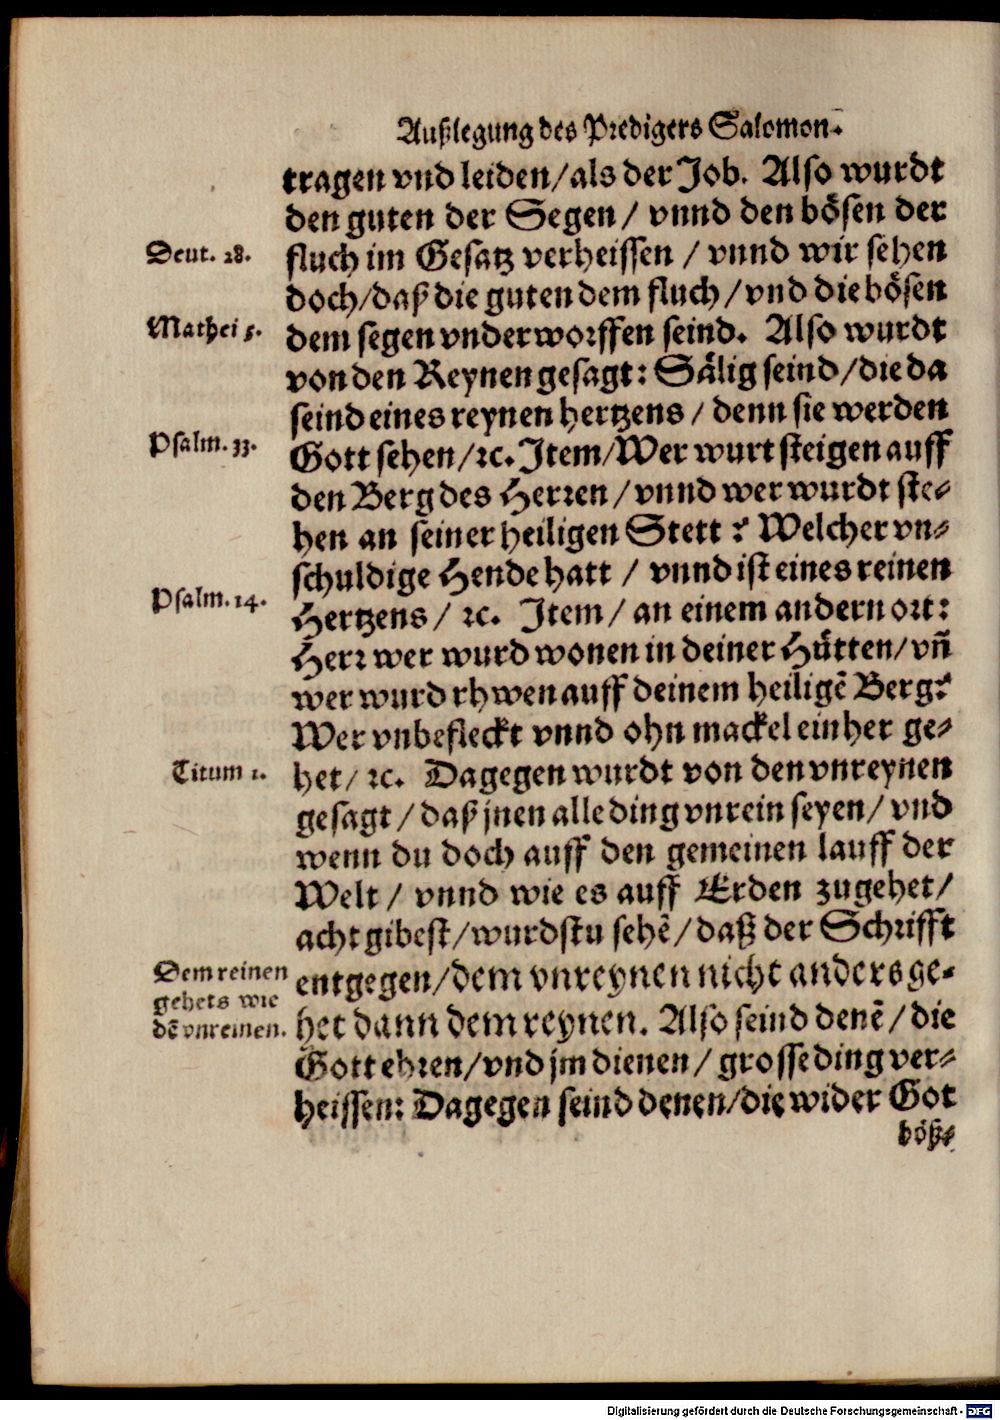 Außlegung des Predigers Salomon.
tragen vnd leiden/als der Job. Also wurdt
den guten der Segen/ vnnd den bösen der
Deut. 28.
fluch im Gesatz verheissen / vnnd wir sehen
doch/daß die guten dem fluch/vnd die bösen
Mathei 5.
dem segen vnderworffen seind. Also wurdt
von den Reynen gesagt: Sälig seind/die da
seind eines reynen hertzens/ denn sie werden
Psalm. 33.
Gott sehen/ꝛc. Item/Wer wurt steigen auff
den Berg des Herren/vnnd wer wurdt ste-
hen an seiner heiligen Stett? Welcher vn-
schuldige Hende hatt / vnnd ist eines reinen
Psalm. 14.
Hertzens/ ꝛc. Item/ an einem andern ort:
Herr wer wurd wonen in deiner Hütten/vñ
wer wurd rhwen auff deinem heiligẽ Berg?
Wer vnbefleckt vnnd ohn mackel einher ge-
Titum 1.
het/ ꝛc. Dagegen wurdt von den vnreynen
gesagt/daß jnen alle ding vnrein seyen/vnd
wenn du doch auff den gemeinen lauff der
Welt/ vnnd wie es auff Erden zugehet/
acht gibest/wurdstu sehẽ/daß der Schrifft
Dem reinen
gehets wie
dẽ vnreinen.
entgegen/dem vnreynen nicht anders ge-
het dann dem reynen. Also seind denẽ/die
Gott ehren/vnd jm dienen/ grosse ding ver-
heissen: Dagegen seind denen/die wider Got
böß-
Digitalisierung gefördert durch die Deutsche Forschungsgemeinschaft - DFG